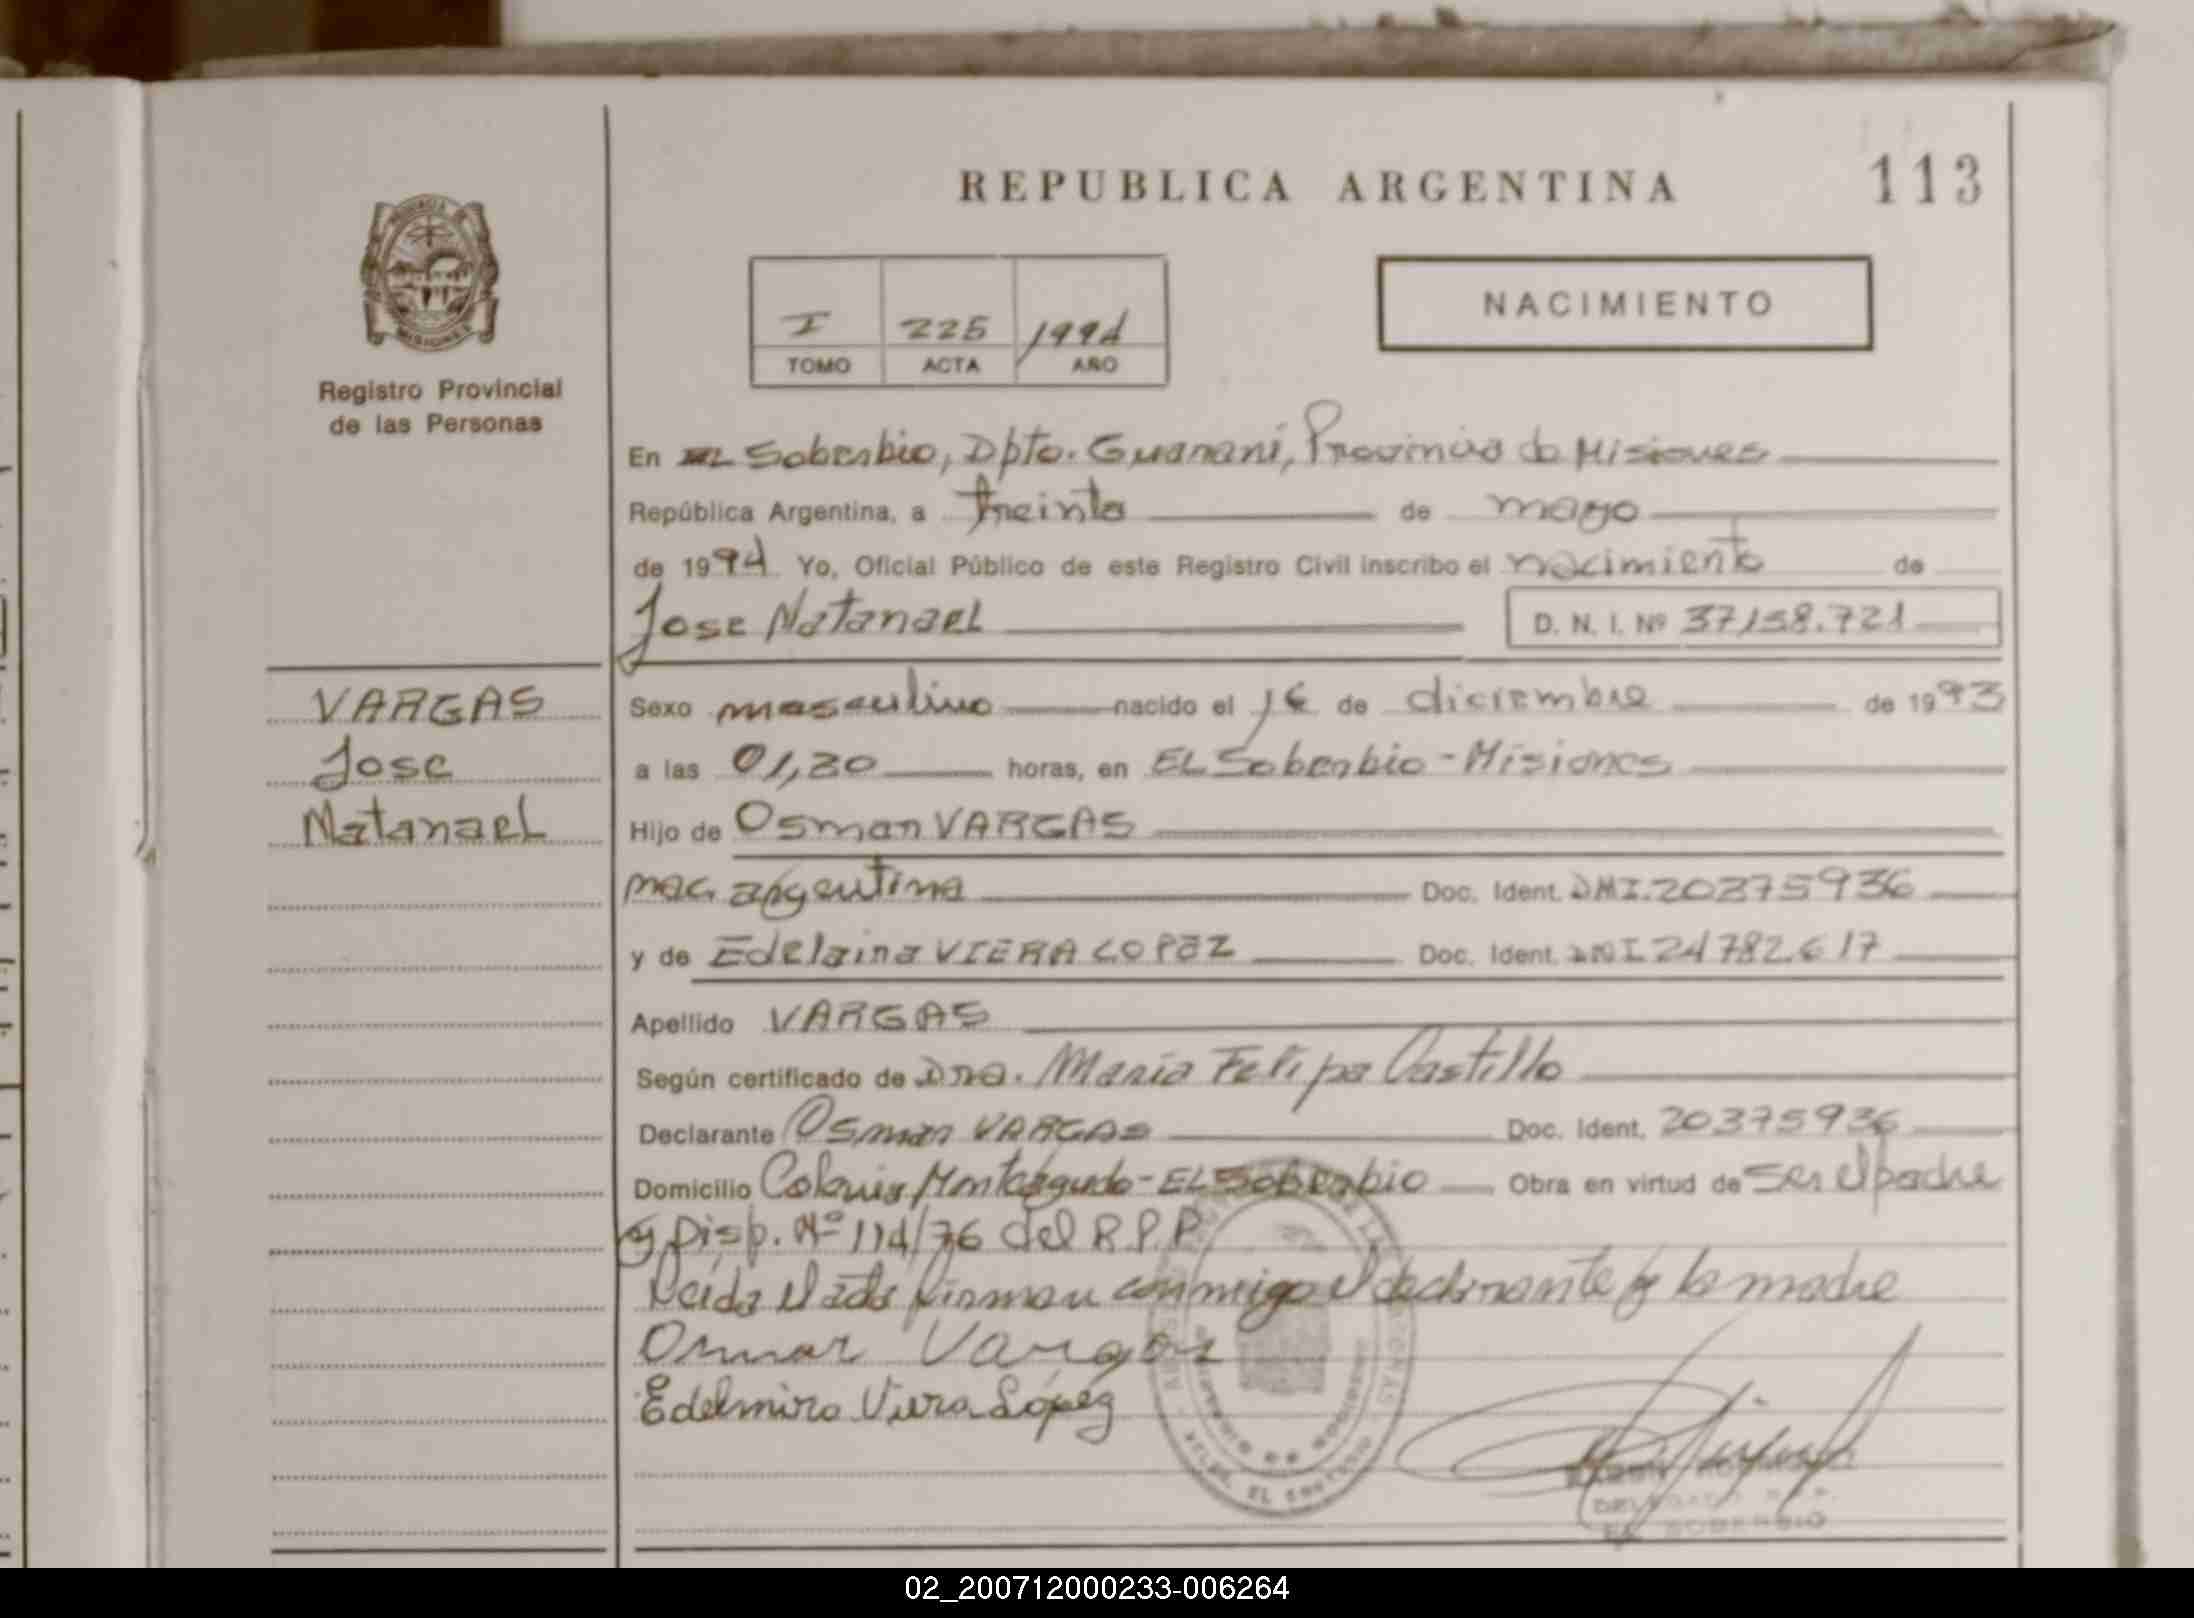 REPUBLICA ARGENTINA
113
PROVINCIA DE
MISIONES
Registro Provincial
de las Personas
NACIMIENTO
I 225 1994
TOMO ACTA AÑO
En EL Soberbio, Dpto. Guarani, Provincia de Misiones
República Argentina, a treinta de mayo
de 1994 Yo, Oficial Público de este Registro Civil inscribo el nacimiento de
Jose Natanael D. N. I. Nº 37,158.721
VARGAS
Jose
Natanael
Sexo masculino nacido el 16 de diciembre de 1993
a las 01,30 horas, en EL Soberbio - Misiones
Hijo de Osmar VARGAS
nac. argentina Doc. Ident. DNI.20375936
y de Edelaina VIERA LOPEZ Doc. Ident. DNI 24782.617
Apellido VARGAS
Según certificado de Dra. María Felipa Castillo
Declarante Osmar VARGAS Doc. Ident. 20375936
Domicilio Colonia Monteagudo - EL Soberbio Obra en virtud de ser el padre
y Disp. Nº 114/76 del R.P.P
Leída el acta firman conmigo el declarante y la madre
Osmar Vargas
Edelmira Viera López
DELEGADO
EL SOBERBIO
02_200712000233-006264